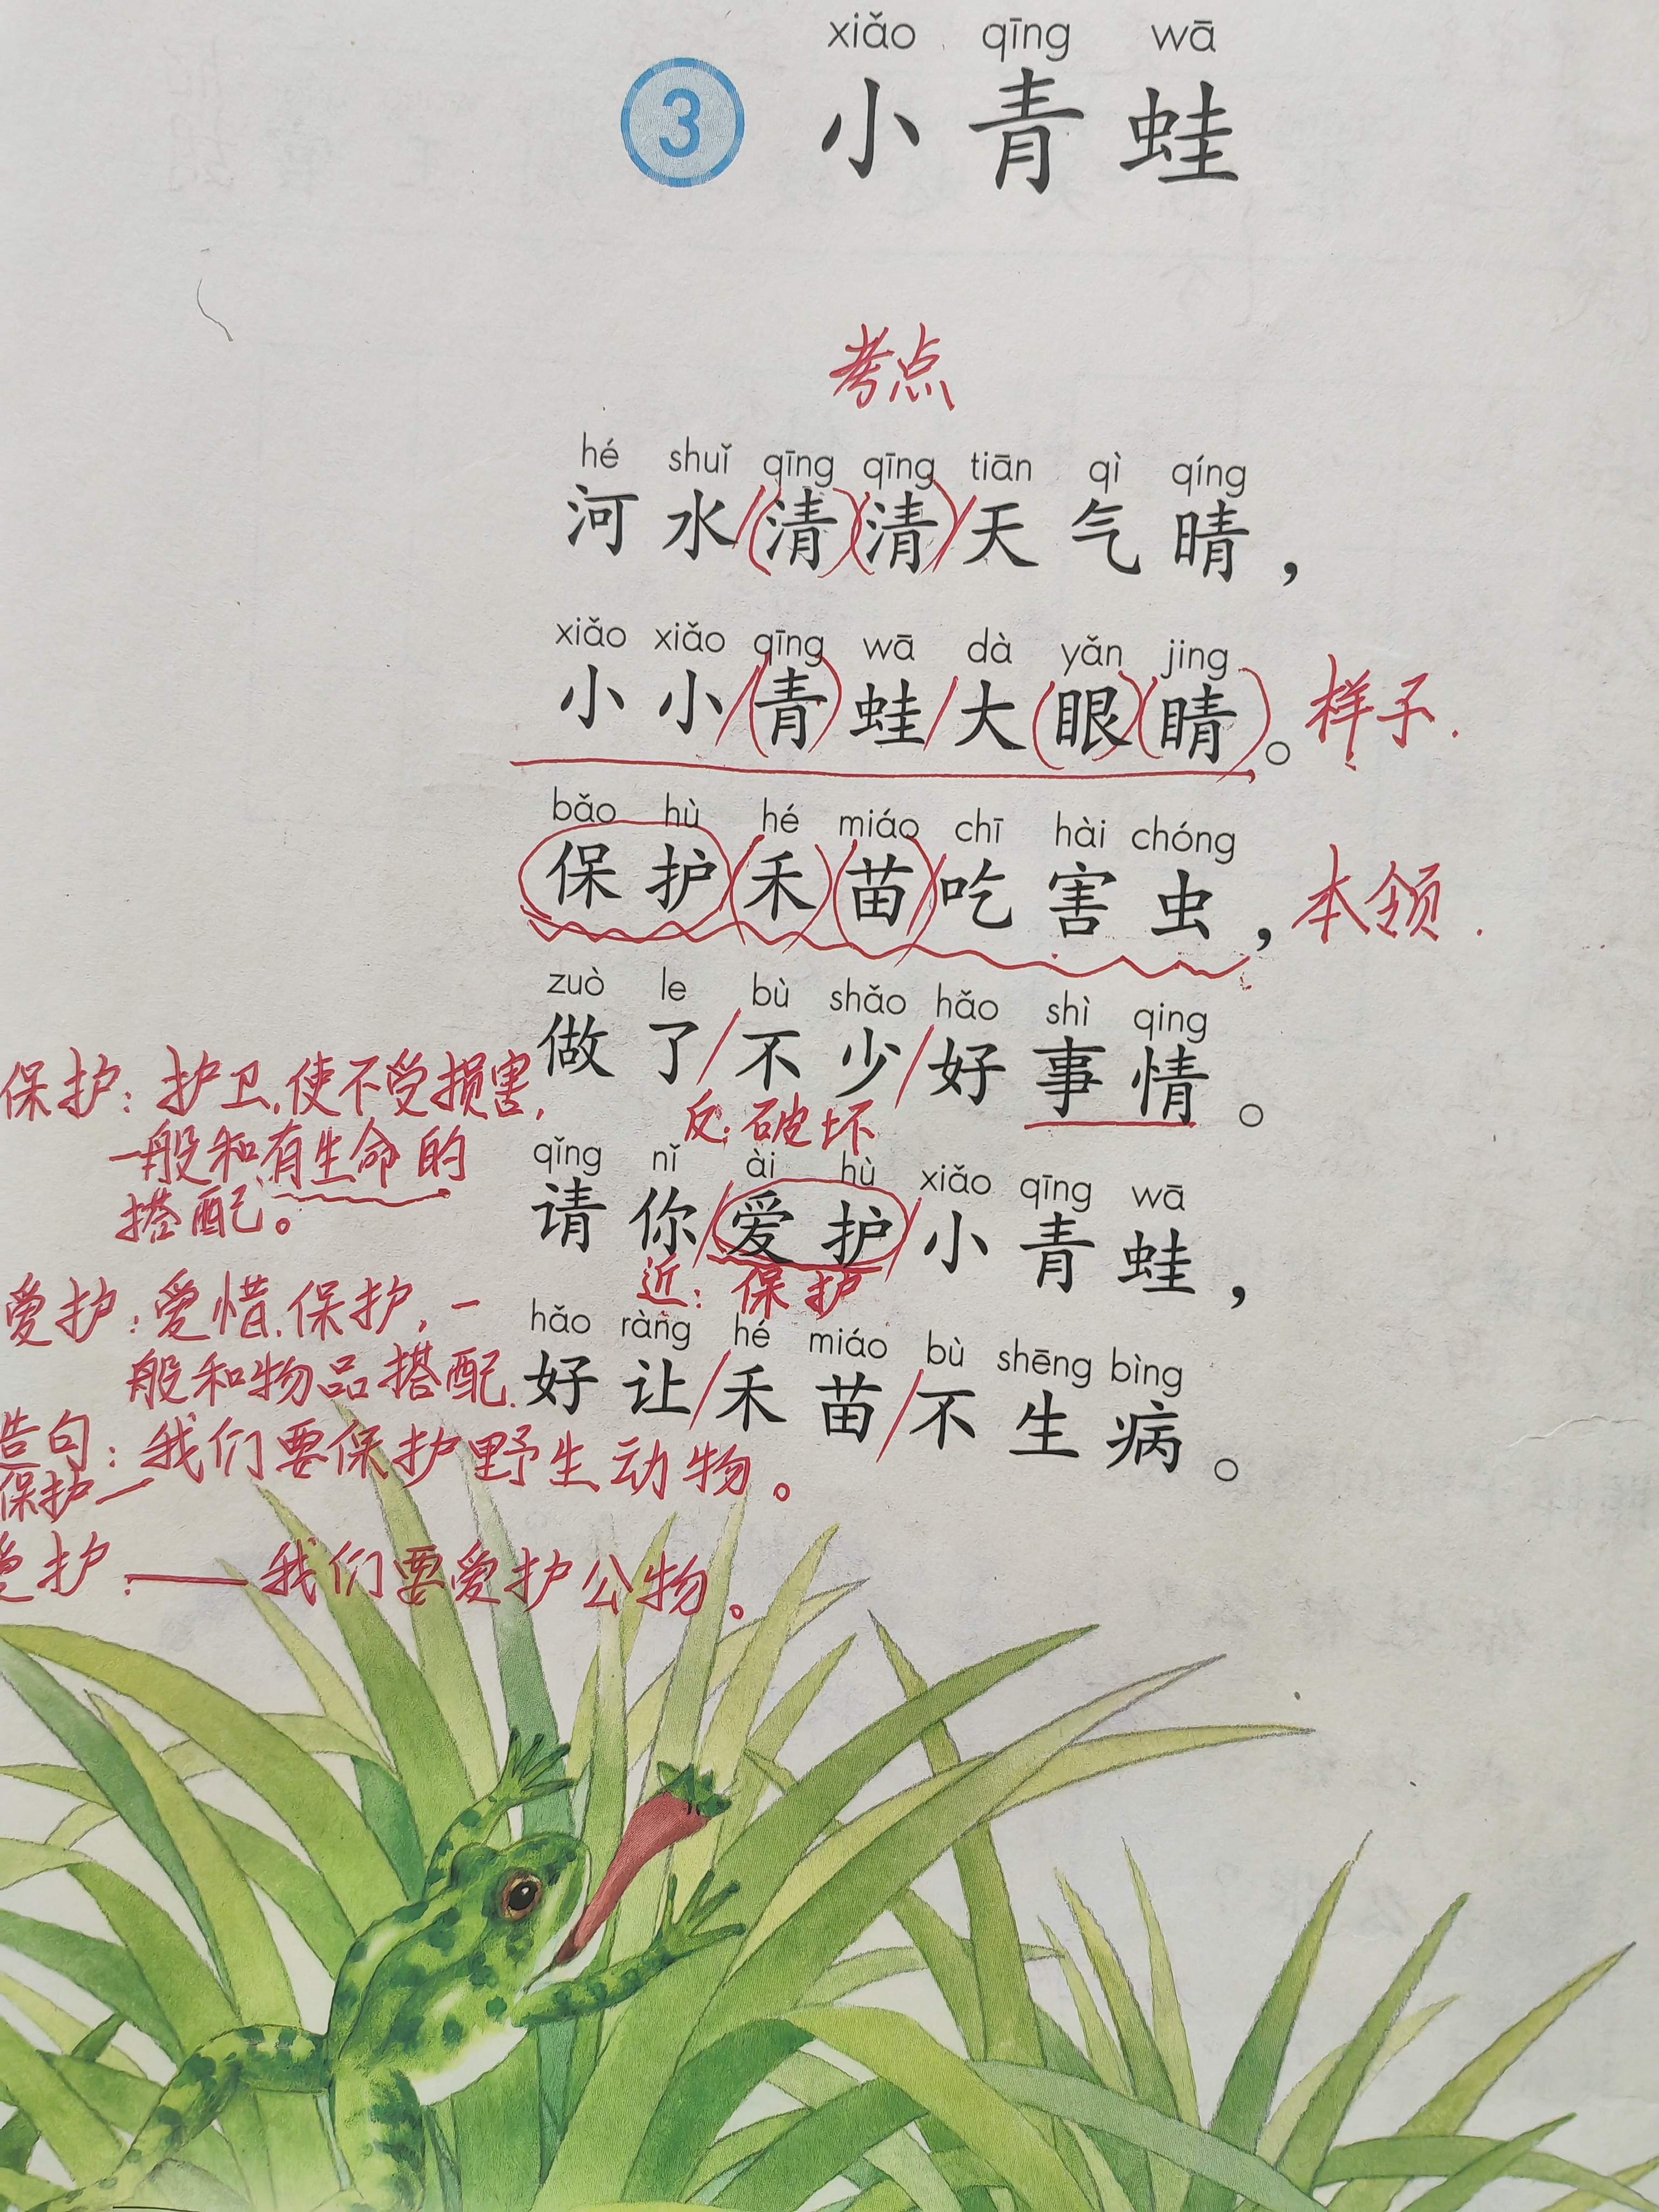 xiǎo qīng wā
3 小青蛙
考点
hé shuǐ qīng qīng tiān qì qíng
河水清清天气晴，
xiǎo xiǎo qīng wā dà yǎn jing
小小青蛙大眼睛。样子.
bǎo hù hé miáo chī hài chóng
保护禾苗吃害虫，本领.
zuò le bù shǎo hǎo shì qing
做了不少好事情。
反:破坏
qǐng nǐ ài hù xiǎo qīng wā
请你爱护小青蛙，
近:保护
hǎo ràng hé miáo bù shēng bìng
好让禾苗不生病。
保护:护卫,使不受损害,
一般和有生命的
搭配。
爱护:爱惜.保护,一
般和物品搭配.
造句:我们要保护野生动物。
保护一
爱护:——我们要爱护公物。